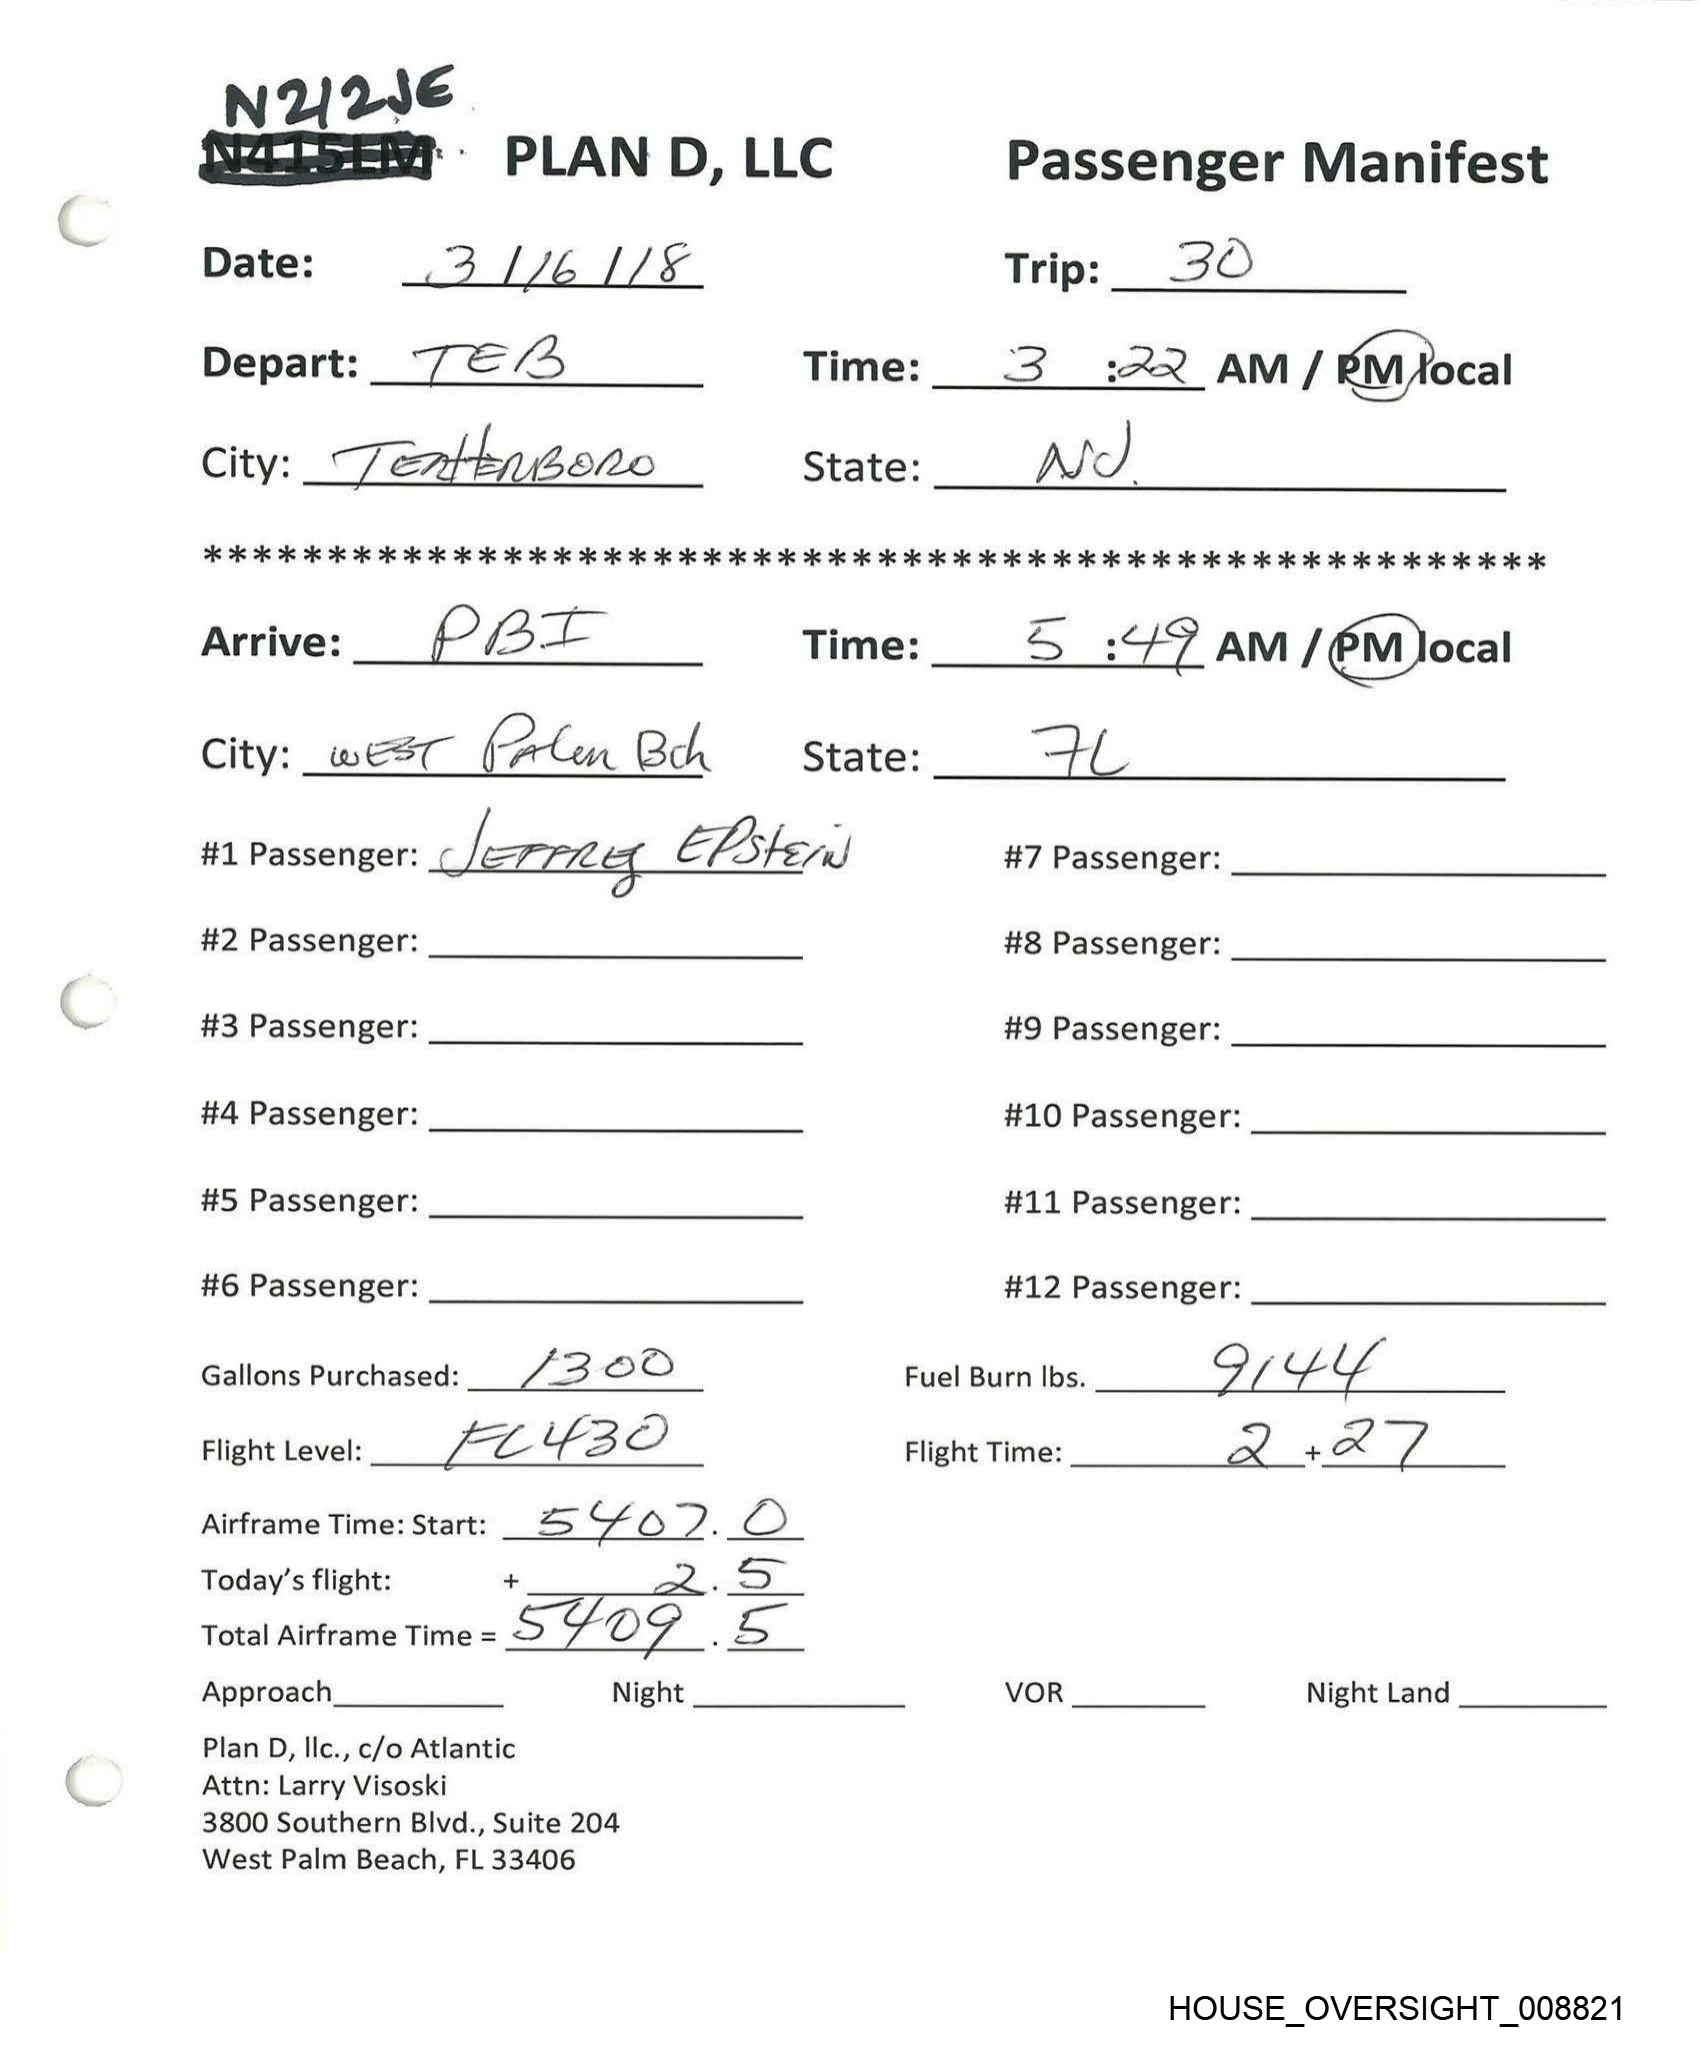 N212JE
N415LM PLAN D, LLC Passenger Manifest
Date: 3/16/18 Trip: 30
Depart: TEB Time: 3 :22 AM / PM local
City: TETERBORO State: NJ.
******************************************************
Arrive: PBI Time: 5 :49 AM / PM local
City: WEST PALM Bch State: FL
#1 Passenger: JEFFREY EPSTEIN #7 Passenger:
#2 Passenger: #8 Passenger:
#3 Passenger: #9 Passenger:
#4 Passenger: #10 Passenger:
#5 Passenger: #11 Passenger:
#6 Passenger: #12 Passenger:
Gallons Purchased: 1300 Fuel Burn lbs. 9144
Flight Level: FL430 Flight Time: 2 + 27
Airframe Time: Start: 5407.0
Today's flight: + 2.5
Total Airframe Time = 5409.5
Approach Night VOR Night Land
Plan D, llc., c/o Atlantic
Attn: Larry Visoski
3800 Southern Blvd., Suite 204
West Palm Beach, FL 33406
HOUSE_OVERSIGHT_008821